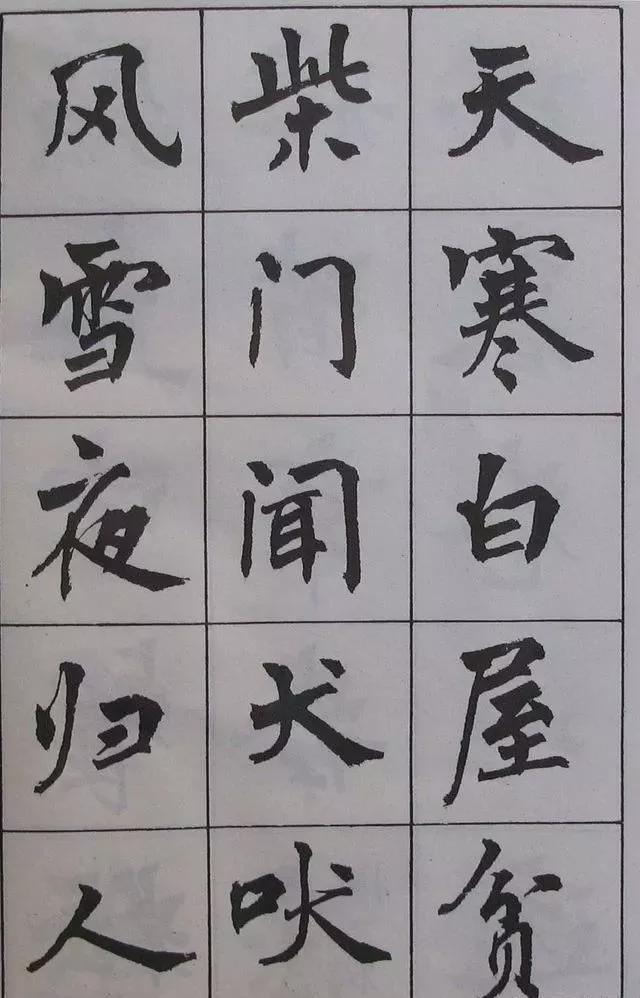 天寒白屋贫
柴门闻犬吠
风雪夜归人